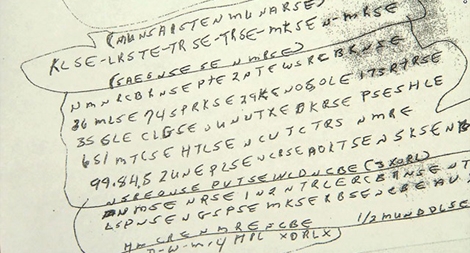 (MUNSAISTENMUNARSE)
KLSE-LRSTE-TRSE-TRSE-MKSEN-MRSE
(SAE6NSE SE NMRSE)
NMNRCBRNSEPTE2PTEWSRCBRNSE
36 MLSE 74SPRKSE 29KENOSOLE 173RTRSE
35 GLE CLGSE UNUTXE DKRSE PSESHLE
651 MTCSE HTLSE NCUTCTRS NMRE
99.84.5 2UNEPLSENCRSEAOLTSENSKSENR
NSREONSE PVTSEWLDNCBE (3XORL)
NMSENRSE IN2NTRLERCBRNSENT
LSPNSENGSPSE MKSERBSENCBE AV
HMCRENMREPCBE 1/2MUNDDLSE
D-W-M-4 MPL XDRLX